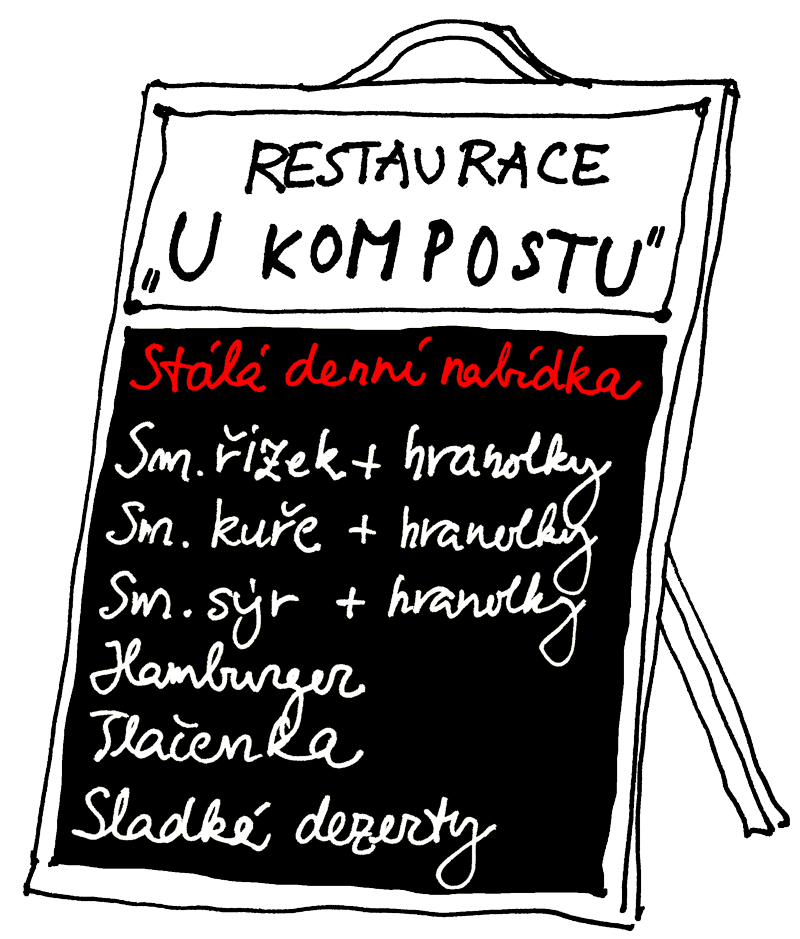 RESTAURACE
„U KOMPOSTU"
Stálá denní nabídka
Sm. řízek + hranolky
Sm. kuře + hranolky
Sm. sýr + hranolky
Hamburger
Tlačenka
Sladké dezerty